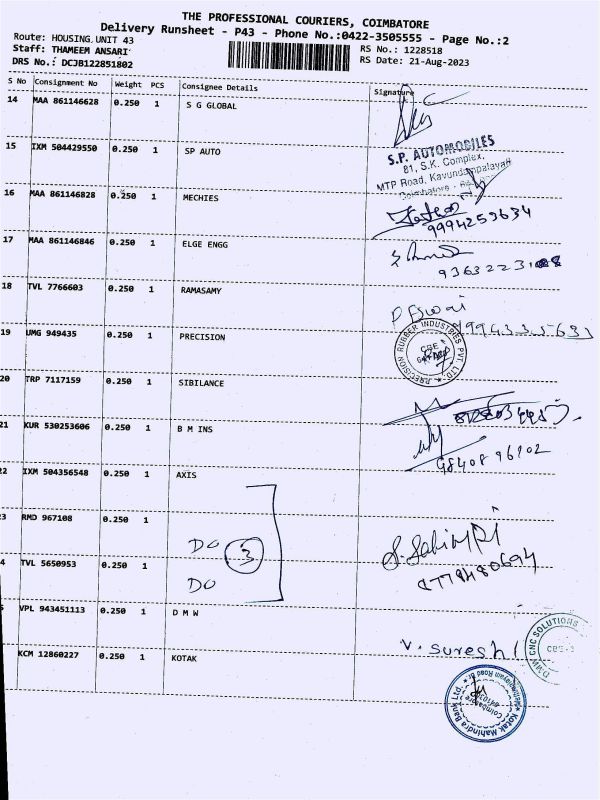 THE PROFESSIONAL COURIERS, COIMBATORE
Delivery Runsheet - P43 - Phone No.:0422-3505555 - Page No.:2
Route: HOUSING UNIT 43
Staff: THAMEEM ANSARI
DRS No.: DCJB122851802
RS No.: 1228518
RS Date: 21-Aug-2023
S No Consignment No Weight PCS Consignee Details Signature
14 MAA 861146628 0.250 1 S G GLOBAL
15 IXM 504429550 0.250 1 SP AUTO
S.P. AUTOMOBILES
81, S.K. Complex,
MTP Road, Kavundampalayam
Coimbatore
16 MAA 861146828 0.250 1 MECHIES
9994259634
17 MAA 861146846 0.250 1 ELGE ENGG
18 TVL 7766603 0.250 1 RAMASAMY
19 UMG 949435 0.250 1 PRECISION
PRECISION RUBBER INDUSTRIES PVT LTD.
CBE
20 TRP 7117159 0.250 1 SIBILANCE
21 KUR 530253606 0.250 1 B M INS
9840896102
22 IXM 504356548 0.250 1 AXIS
3 RMD 967108 0.250 1 DO
3
4 TVL 5650953 0.250 1 DO
5 VPL 943451113 0.250 1 D M W
V. Suresh
DMW CNC SOLUTIONS
KCM 12860227 0.250 1 KOTAK
Kotak Mahindra Bank Ltd.
Coimbatore